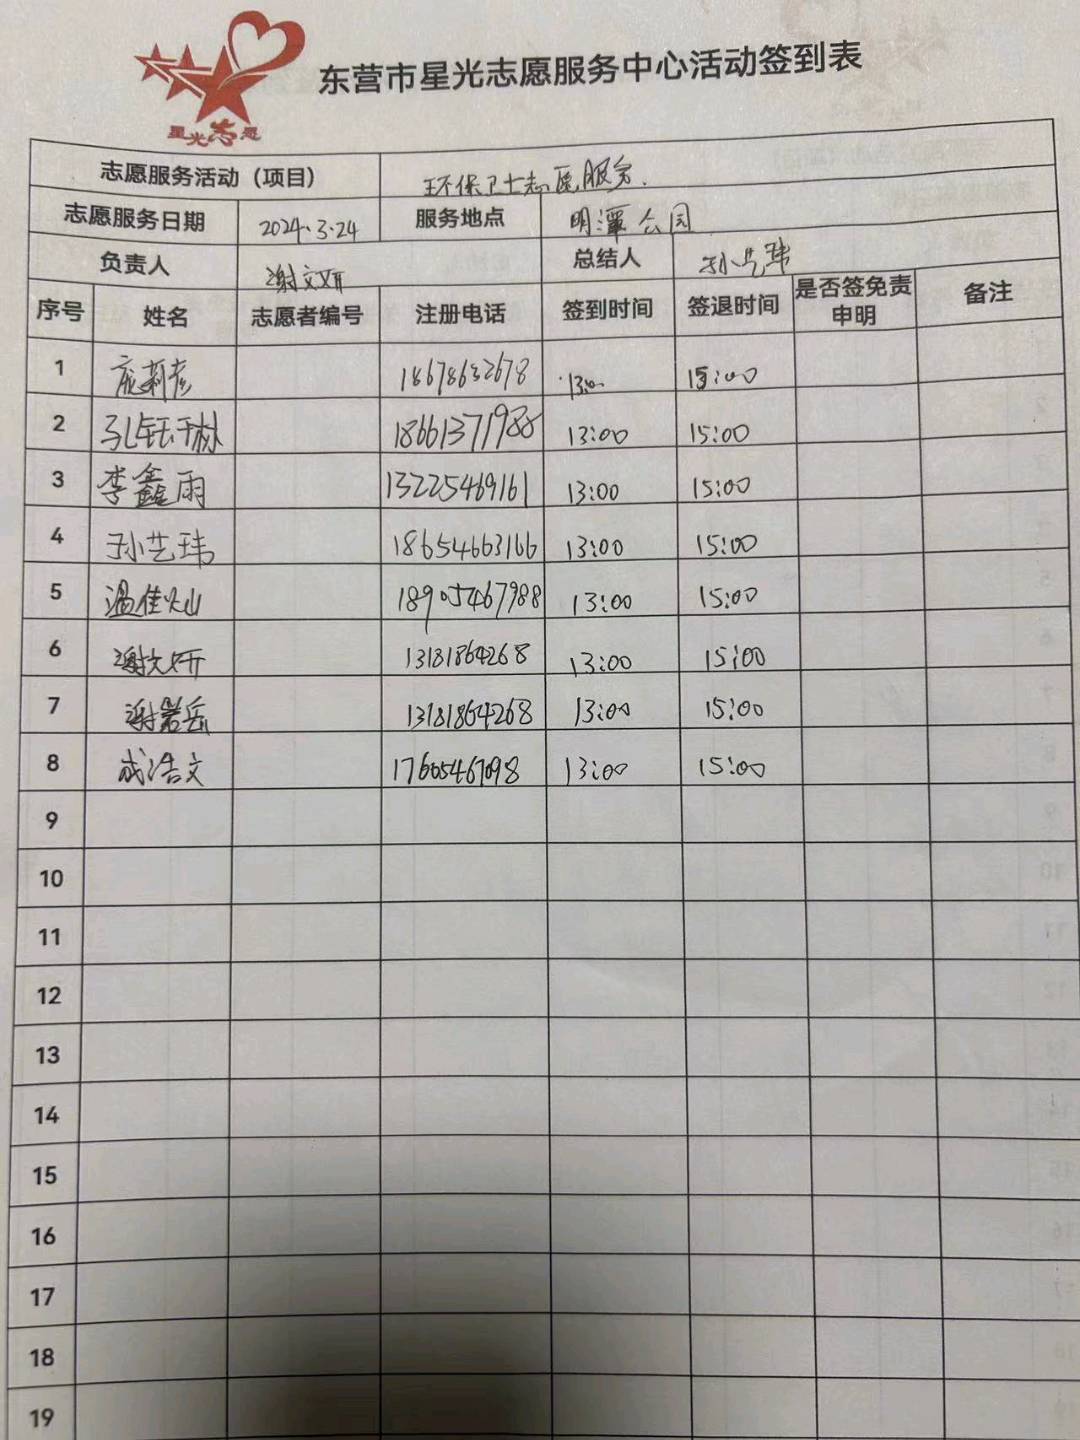 星光志愿
东营市星光志愿服务中心活动签到表
志愿服务活动（项目） 环保卫士志愿服务.
志愿服务日期 2024.3.24 服务地点 明潭公园
负责人 谢文妍 总结人 孙艺玮
序号 姓名 志愿者编号 注册电话 签到时间 签退时间 是否签免责申明 备注
1 18678632678 13:00 15:00
2 18661371988 13:00 15:00
3 李鑫雨 13225469161 13:00 15:00
4 孙艺玮 18654663166 13:00 15:00
5 温佳灿 18905467988 13:00 15:00
6 谢文妍 13181864268 13:00 15:00
7 谢岩岳 13181864268 13:00 15:00
8 成浩文 13:00 15:00
9
10
11
12
13
14
15
16
17
18
19